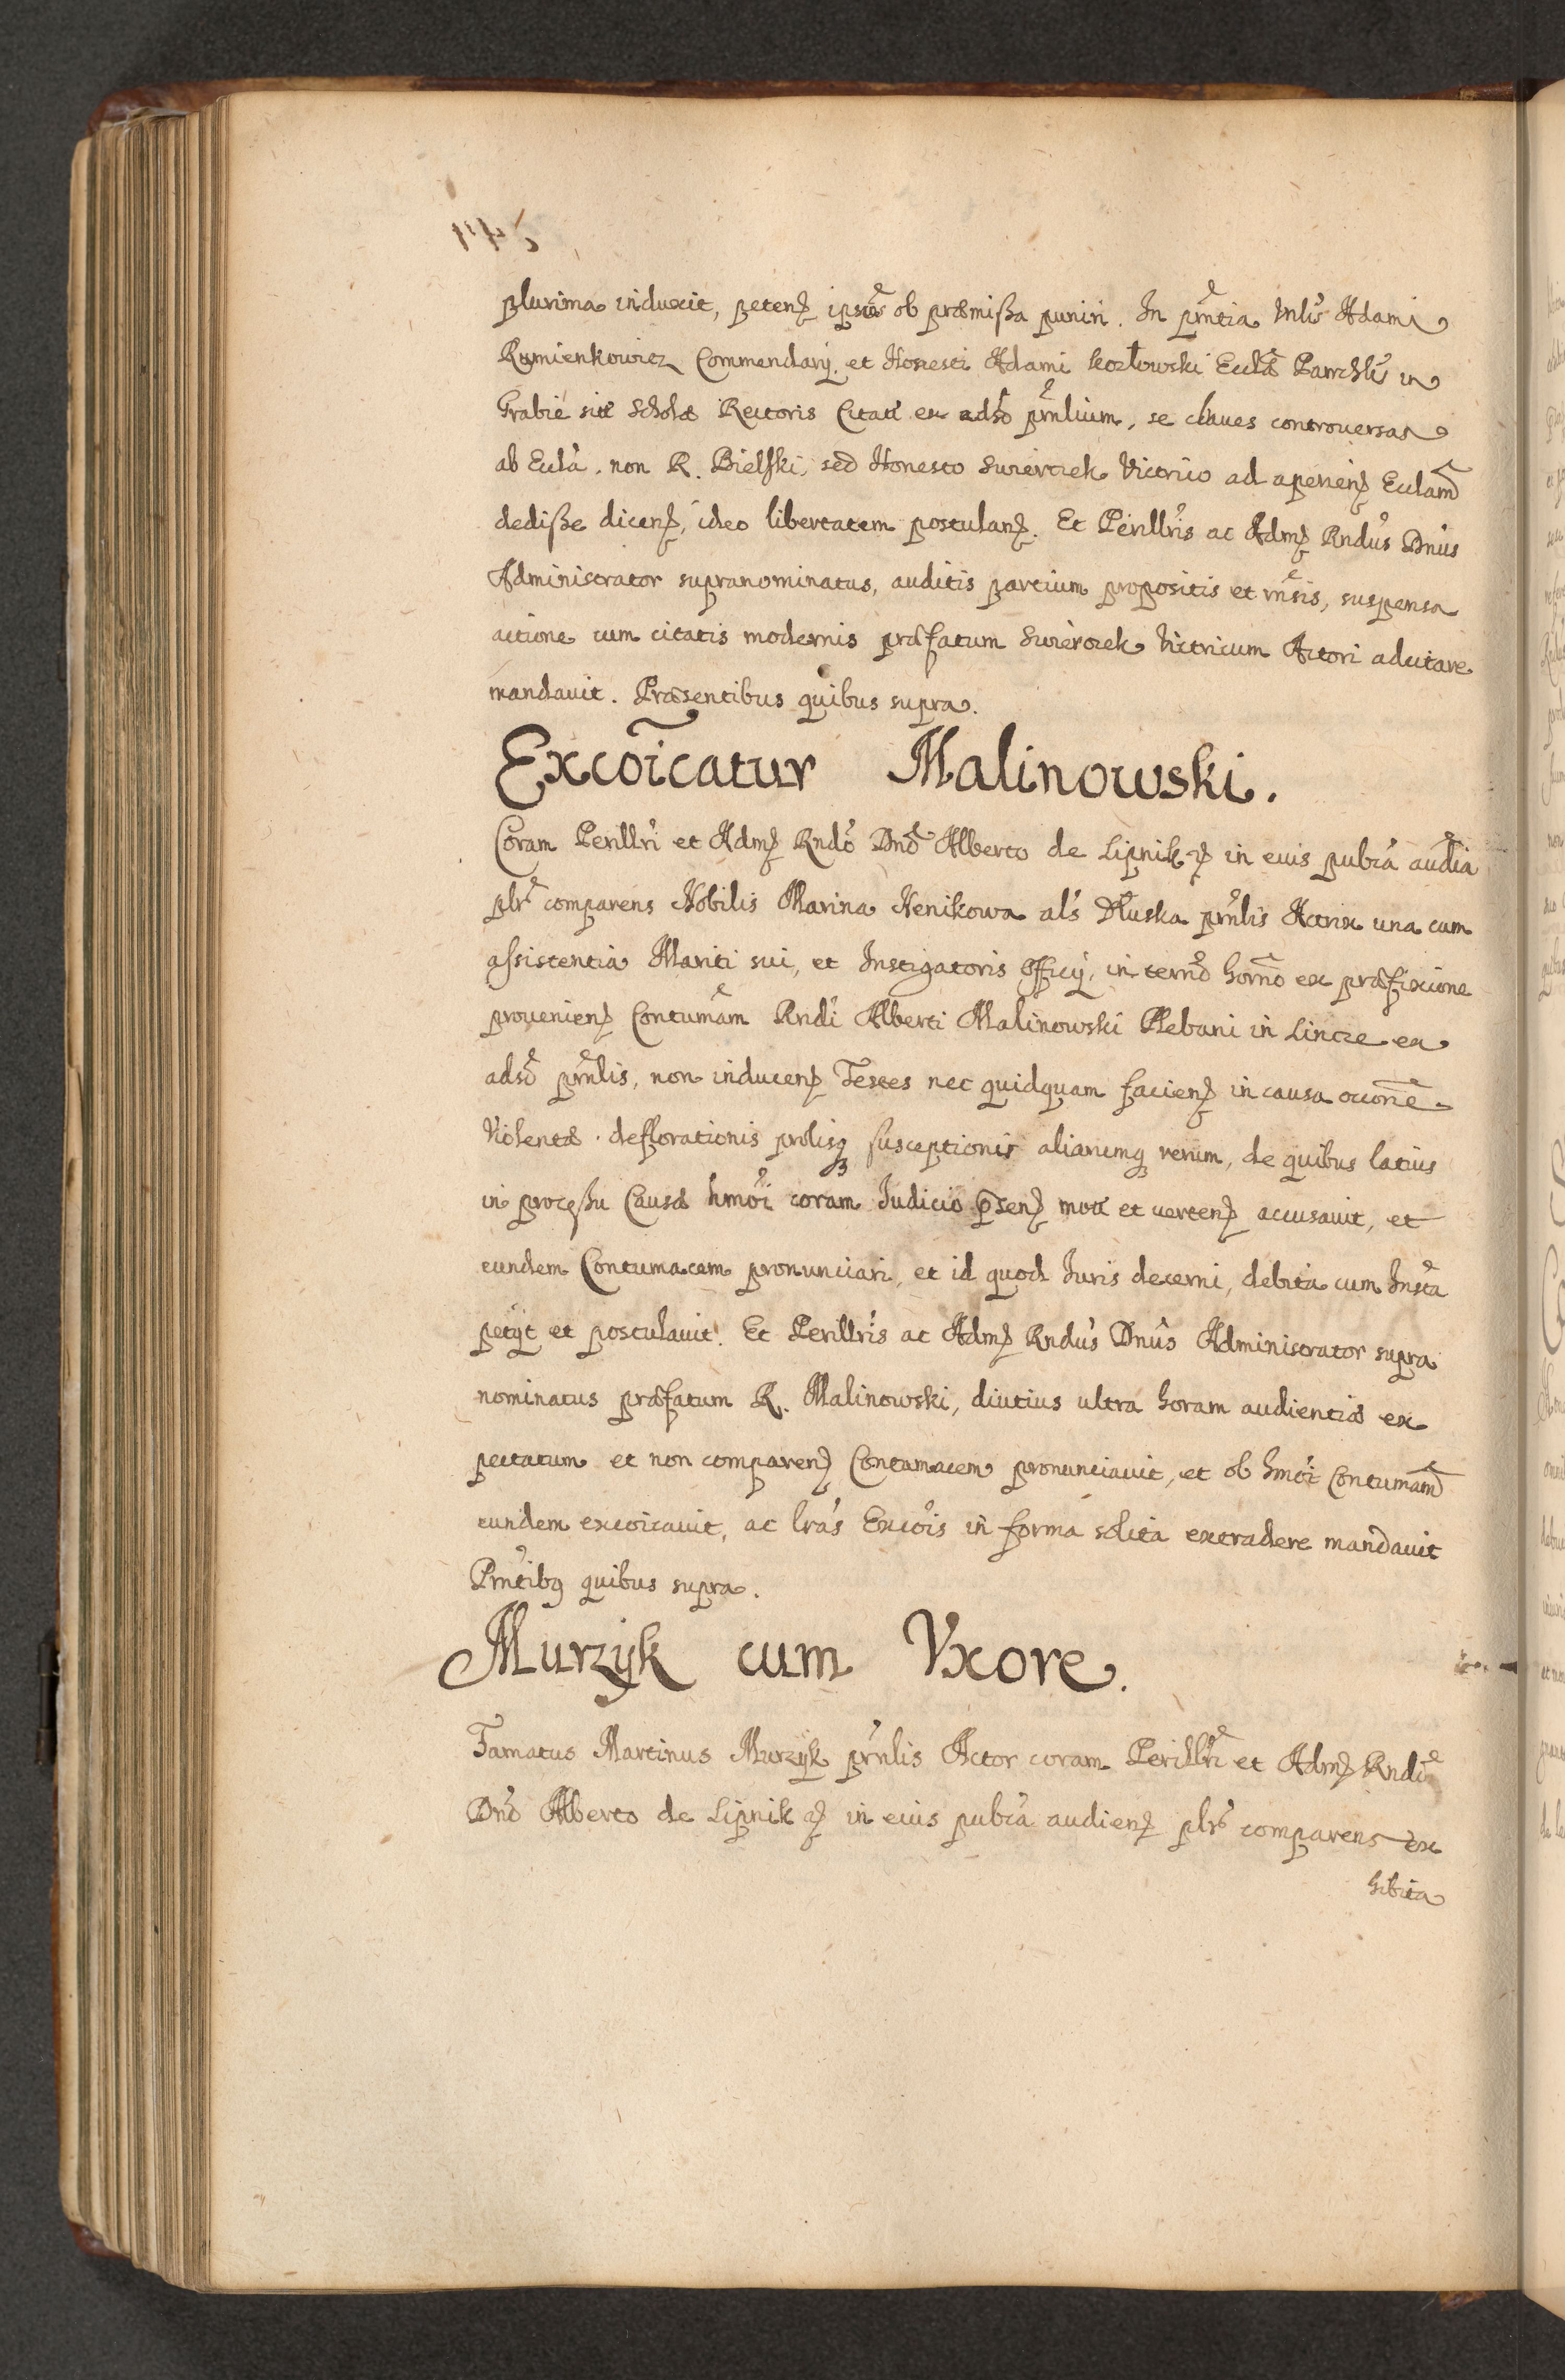 plurima induxit, petenȝ ipsũ ob præmissa puniri. In pñtia Vnlis Adami
Rumienkowicz Commendarij, et Honesti Adami Kozłowski Eccłæ Parrchlis in
Grabie sitæ Scholæ Rectoris Citati ex adso pñnlium, se claues controuersas
ab Eccła, non R. Bielski, sed Honesto Swierczek Victrico ad aperienȝ Ecclam
dedisse dicenȝ, ideo libertatem postulanȝ. Et Perillris ac Admȝ Rndus Dnus
Administrator supranominatus, auditis partium propositis et rñsis, suspensa
actione cum citatis modernis præfatum Swierczek Victricum Actori adcitare
mandauit. Præsentibus quibus supra.
Excõicatur Malinowski.
Coram Perillri et Admȝ Rndo Dno Alberto de Lipnik ȝ in eius publca audia
plr comparens Nobilis Marina Henikowa als Dłuska prnlis Actrix una cum
assistentia Mariti sui, et Instigatoris Officij, in termo horno ex præfixione
prouenienȝ Contumam Rndi Alberti Malinowski Plebani in Lincze ex
adso prnlis, non inducenȝ Testes nec quidquam facienȝ in causa occone
Violentæ deflorationis prolisq susceptionis aliarumq rerum, de quibus latius
in processu Causæ hmoi coram Iudicio p̃senȝ motæ et uertenȝ accusauit, et
eundem Contumacem pronunciari, et id quod Iuris decerni, debita cum Insta
petijt et postulauit. Et Perillris ac Admȝ Rndus Dnus Administrator supra
nominatus præfatum R. Malinowski, diutius ultra horam audientiæ ex
pectatum et non comparenȝ Contumacem pronunciauit, et ob hmoi Contumam
eundem excoicauit, ac lras Excois in forma solita extradere mandauit
Prntibq quibus supra.
Murzyk cum Vxore.
Famatus Martinus Murzyk prnlis Actor coram Perillri et Admȝ Rndo
Dno Alberto de Lipnik ȝ in eius publca audienȝ plr comparens ex
hibita